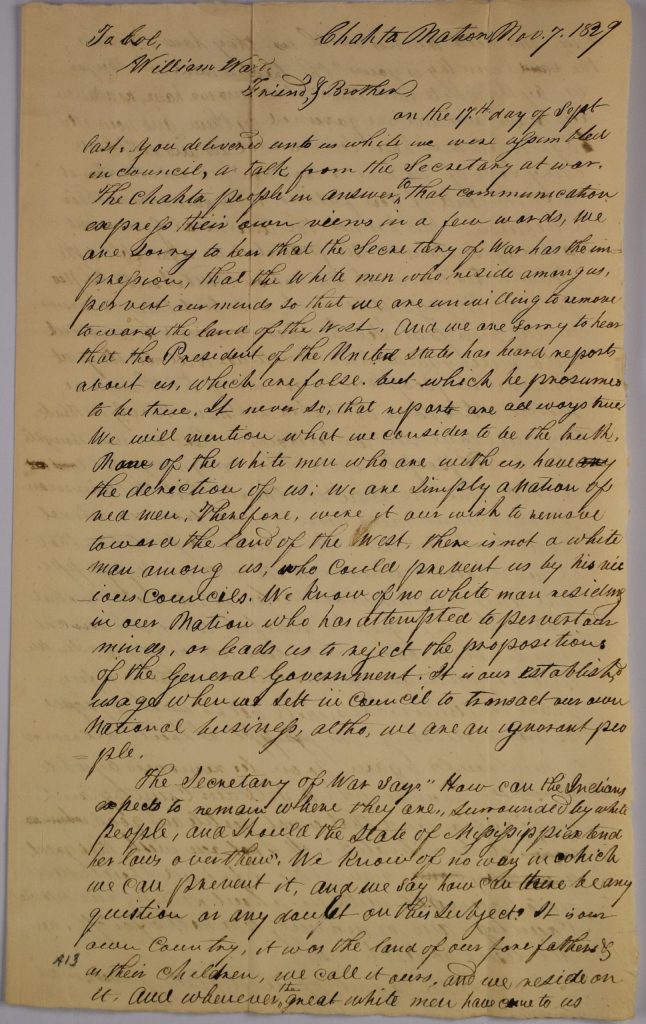 Chahta Nation Nov. 7. 1829
To Col,
William Ward.
Friend, & Brother
on the 17th day of Sept
last. you delivered unto us while we were assembled
in council, a talk from the Secretary at war.
The Chahta people in answer to that communication
express their own views in a few words, We
are sorry to hear that the Secretary of War has the im-
pression, that the white men who reside among us,
pervert our minds so that we are unwilling to remove
toward the land of the West. And we are sorry to hear
that the President of the United States has heard reports
about us, which are false. but which he presumes
to be true. It never so, that reports are always true
We will mention what we consider to be the truth.
None of the white men who are with us, have any
the derection of us; we are simply a nation of
red men. Therefore, were it our wish to remove
toward the land of the West, there is not a white
man among us, who could prevent us by his vic
ious Councils. We know of no white man residing
in our Nation who has attempted to pervert our
minds, or leads us to reject the propositions
of the General Government. It is our establish'd
usage when we sett in Council to transact our own
National business, altho, we are an ignorant peo
=ple.
The Secretary of War says "How can the Indians
expects to remain where they are, surrounded by white
people, and should the State of Mississippi extend
her laws over them". We know of no way in which
we can prevent it, and we say how can there be any
question or any doubt on this subject. It is our
own Country, it was the land of our forefathers &
as their children, we call it ours, and we reside on
it. And whenever the great white men have come to us
A13